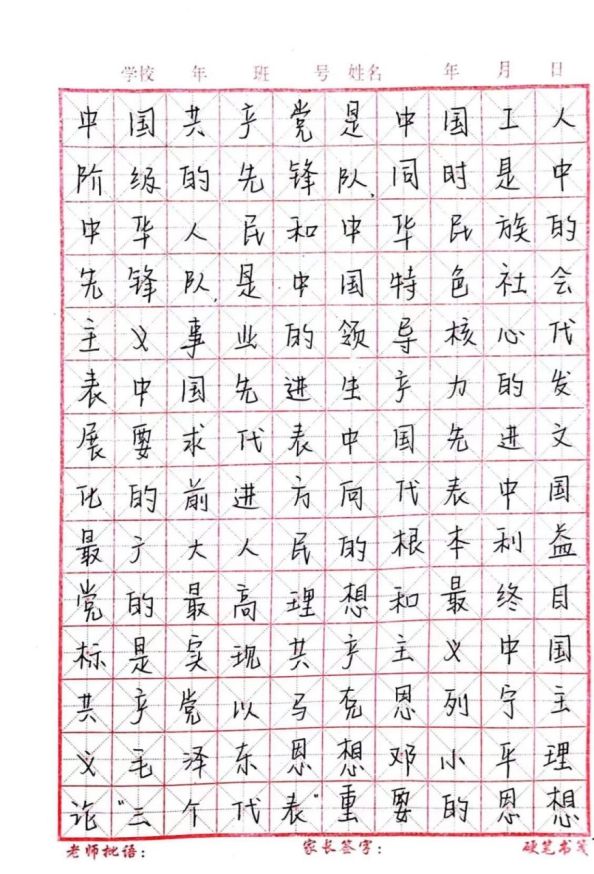 学校 年 班 号 姓名 年 月 日
中国共产党是中国工人
阶级的先锋队,同时是中
中华人民和中华民族的
先锋队,是中国特色社会
主义事业的领导核心代
表中国先进生产力的发
展要求代表中国先进文
化的前进方向代表中国
最广大人民的根本利益
党的最高理想和最终目
标是实现共产主义中国
共产党以马克思列宁主
义毛泽东思想邓小平理
论“三个代表”重要的思想
老师批语: 家长签字: 硬笔书笺